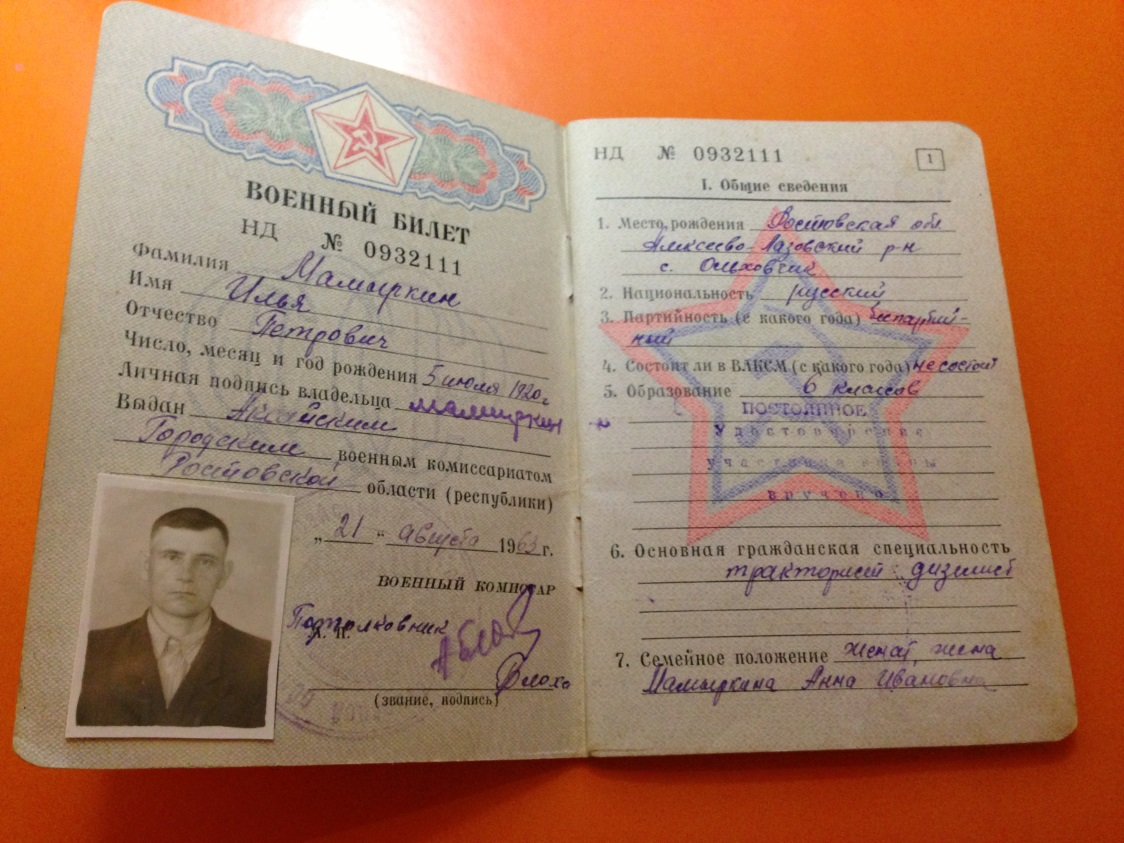 ВОЕННЫЙ БИЛЕТ
НД № 0932111
Фамилия Мамыркин
Имя Илья
Отчество Петрович
Число, месяц и год рождения 5 июля 1920 г.
Личная подпись владельца
Выдан Аксайским
Городским военным комиссариатом
Ростовской области (республики)
„21“ августа 1963 г.
ВОЕННЫЙ КОМИССАР
Подполковник
(звание, подпись)
НД № 0932111
1
I. Общие сведения
1. Место рождения Ростовская обл
Алексеево-Лазовский р-н
с. Ольховчик
2. Национальность русский
3. Партийность (с какого года) беспартий-
ный
4. Состоит ли в ВЛКСМ (с какого года) не состоит
5. Образование 6 классов
ПОСТОЯННОЕ
Удостоверение
участника войны
вручено
6. Основная гражданская специальность
тракторист дизелист
7. Семейное положение женат, жена
Мамыркина Анна Ивановна